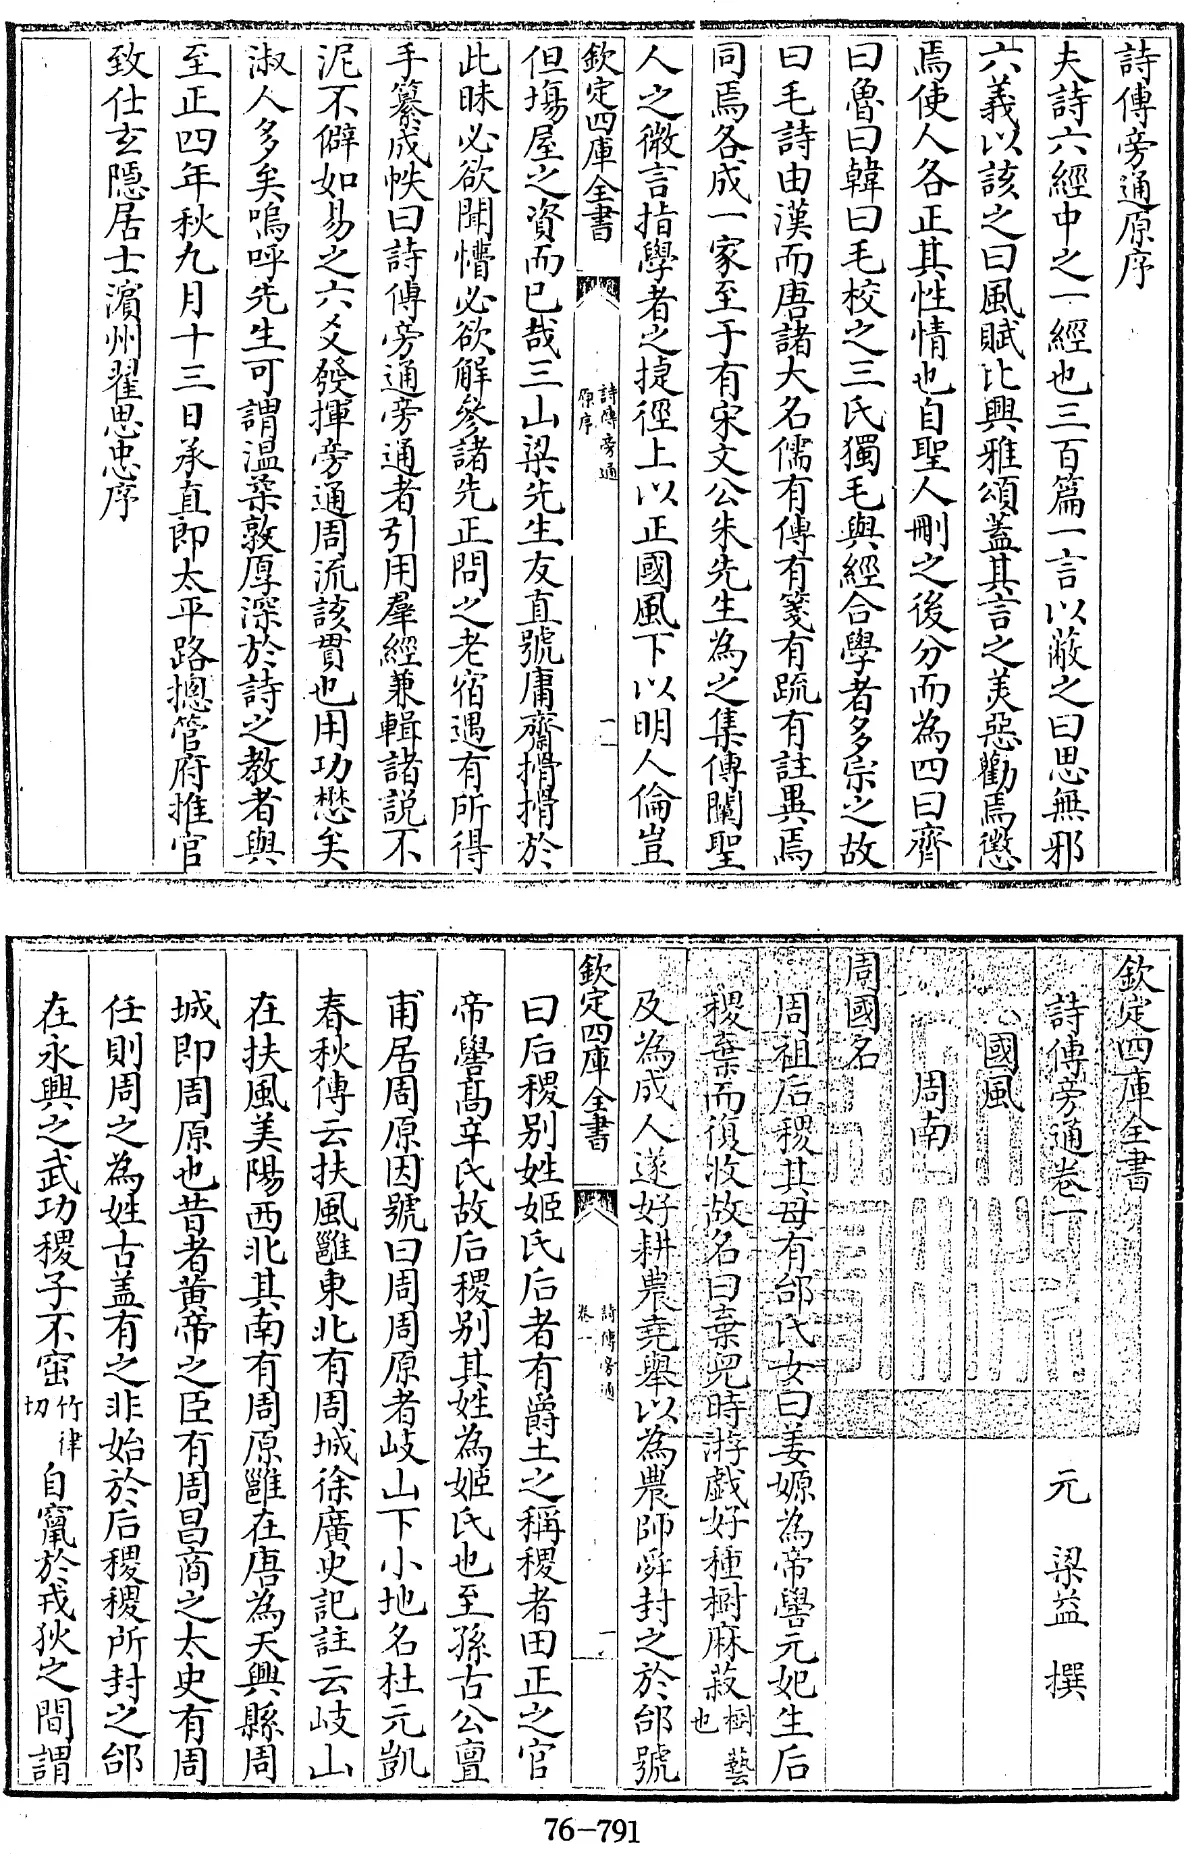 詩傳旁通原序
夫詩六經中之一經也三百篇一言以蔽之曰思無邪
六義以該之曰風賦比興雅頌蓋其言之美惡勸焉懲
焉使人各正其性情也自聖人刪之後分而為四曰齊
曰魯曰韓曰毛校之三氏獨毛與經合學者多宗之故
曰毛詩由漢而唐諸大名儒有傳有箋有疏有註異焉
同焉各成一家至于有宋文公朱先生為之集傳闡聖
人之微言指學者之捷徑上以正國風下以明人倫豈
欽定四庫全書
詩傳旁通
原序
一
但塲屋之資而已哉三山梁先生友直號庸齋搰搰於
此昧必欲聞懵必欲解參諸先正問之老宿遇有所得
手纂成帙曰詩傳旁通旁通者引用羣經兼輯諸説不
泥不僻如易之六爻發揮旁通周流該貫也用功懋矣
淑人多矣嗚呼先生可謂温柔敦厚深於詩之教者與
至正四年秋九月十三日承直郎太平路摠管府推官
致仕玄隱居士濵州翟思忠序
欽定四庫全書
詩傳旁通卷一
元 梁益 撰
國風
周南
周國名
周祖后稷其母有邰氏女曰姜嫄為帝嚳元妃生后
稷棄而復收故名曰棄兒時游戲好種樹麻菽樹藝也
及為成人遂好耕農堯舉以為農師舜封之於邰號
欽定四庫全書
詩傳旁通
卷一
一
曰后稷别姓姬氏后者有爵土之稱稷者田正之官
帝嚳髙辛氏故后稷别其姓為姬氏也至孫古公亶
甫居周原因號曰周周原者岐山下小地名杜元凱
春秋傳云扶風雝東北有周城徐廣史記註云岐山
在扶風美陽西北其南有周原雝在唐為天興縣周
城即周原也昔者黄帝之臣有周昌商之太史有周
任則周之為姓古盖有之非始於后稷稷所封之邰
在永興之武功稷子不窋竹律切自竄於戎狄之間謂
76-791